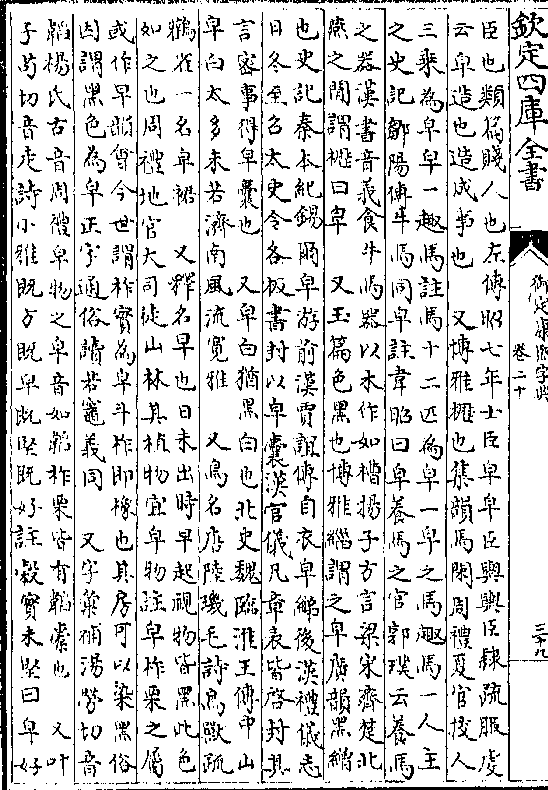 欽定四庫全書
御定康熙字典
卷二十
三十九
臣也類為賤人也左傳昭七年士臣皁皁臣輿輿臣隸疏服虔
云皁造也造成事也 又博雅櫪也集韻馬閑周禮夏官校人
三乘為皁皁一趣馬註馬十二匹為皁一皁之馬趣馬一人主
之史記鄒陽傳牛馬同皁註韋昭曰皁養馬之官郭璞云養馬
之器漢書音義食牛馬器以木作如槽揚子方言梁宋齊楚北
燕之閒謂櫪曰皁 又玉篇色黑也博雅緇謂之皁廣韻黑繒
也史記秦本紀錫爾皁游前漢賈誼傳自衣皁綈後漢禮儀志
日冬至召太史令各板書封以皁囊漢官儀凡章表皆啓封其
言密事得皁囊也 又皁白猶黑白也北史魏臨淮王傳中山
皁白太多未若濟南風流寛雅 又鳥名唐陸璣毛詩鳥獸疏
鸛雀一名皁裙 又釋名早也日未出時早起視物皆黑此色
如之也周禮地官大司徒山林其植物宜皁物註皁柞栗之屬
或作早韻會今世謂柞實為皁斗柞即橡也其房可以染黑俗
因謂黑色為皁正字通俗讀若竈義同 又字彙補湯勞切音
韜楊氏古音周禮皁物之皁音如韜柞栗皆有韜橐也 又叶
子苟切音走詩小雅既方既皁既堅既好註穀實未堅曰皁好